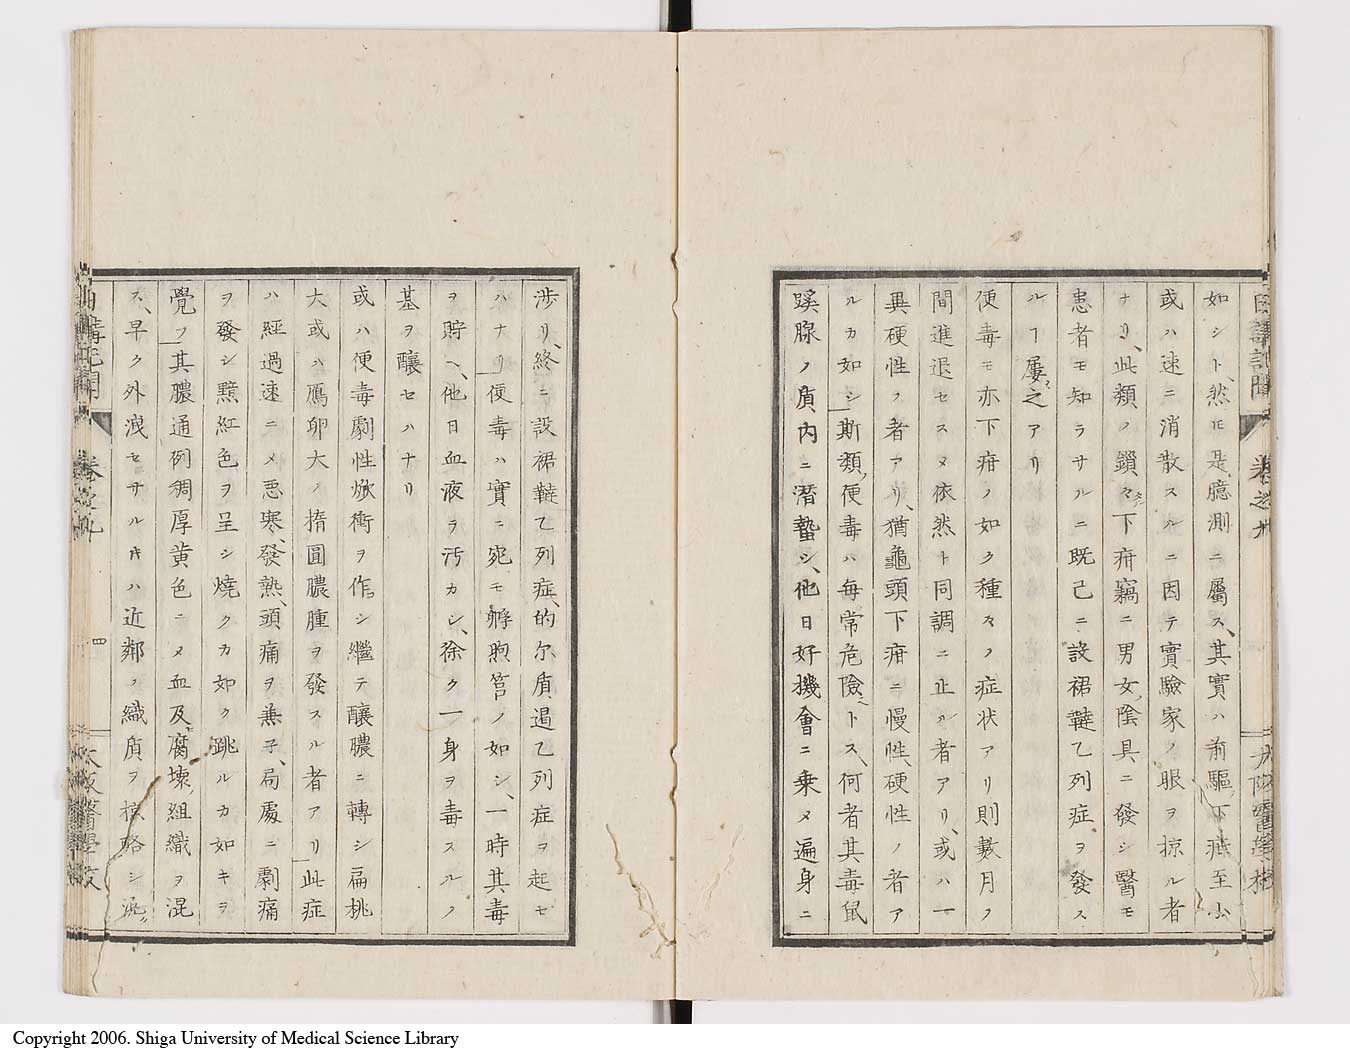 日講記聞
卷之九
大阪醫學校
如シト、然𪜈是臆測ニ屬ス、其實ハ前驅下疳至少
或ハ速ニ消散スルニ因テ實驗家ノ眼ヲ掠ル者
ナリ、此類ノ鎖々下疳竊ニ男女陰具ニ發シ醫モ
患者モ知ラサルニ既己ニ設裙韃乙列症ヲ發ス
ルヿ屡之アリ
便毒モ亦下疳ノ如ク種々ノ症状アリ則數月ノ
間進退セスメ依然ト同調ニ止ル者アリ、或ハ一
異硬性ノ者アリ、猶龜頭下疳ニ慢性硬性ノ者ア
ルカ如シ斯類便毒ハ每常危險トス、何者其毒鼠
蹊腺ノ質内ニ潜蟄シ、他日好機會ニ乗メ遍身ニ
涉リ、終ニ設裙韃乙列症、的尓質遏乙列症ヲ起セ
ハナリ便毒ハ實ニ宛モ孵煦筥ノ如シ、一時其毒
ヲ貯ヘ、他日血液ヲ汚カシ、徐ク一身ヲ毒スルノ
基ヲ釀セハナリ
或ハ便毒劇性焮衝ヲ作シ繼テ釀膿ニ轉シ扁桃
大或ハ鴈卵大ノ楕圓膿腫ヲ發スル者アリ此症
ハ經過速ニメ悪寒、發熱、頭痛ヲ兼子、局處ニ劇痛
ヲ發シ㸃紅色ヲ呈シ燒クカ如ク跳ルカ如キヲ
覺フ其膿通例稠厚黄色ニメ血及腐壊組織ヲ混
ス、早ク外洩セサルキハ近鄰ノ織質ヲ掠略シ
日講記聞
卷之九
四
大阪醫學校
Copyright 2006. Shiga University of Medical Science Library